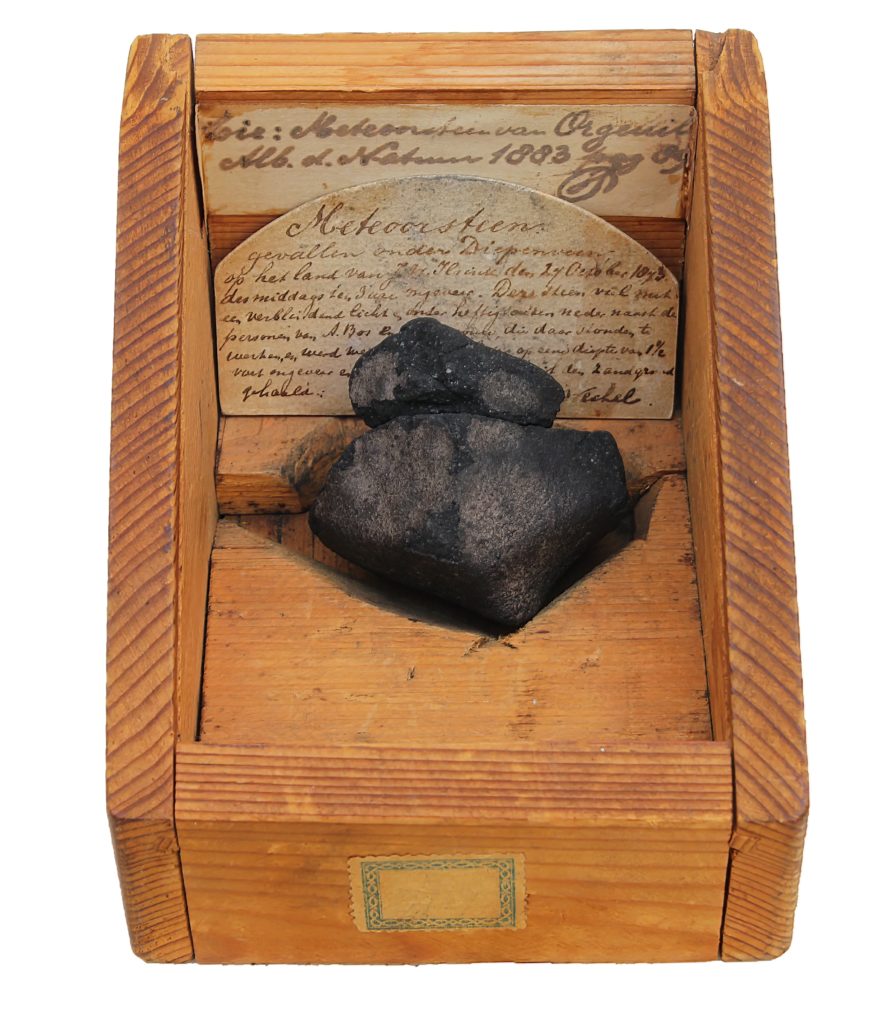 Zie: Meteoorsteen van Orgeuil
Alb. d. Natuur 1883 pag 89
Meteoorsteen.
gevallen onder Diepenveen,
op het land van den 27 October 1873
des middags ten 3 ure ongeveer. Deze steen viel met
een verblindend licht onder hevig neder naast de
personen van A. Bos en die daar stonden te
werken, en werd op eene diepte van 1½
voet ongeveer uit den zandgrond
gehaald.